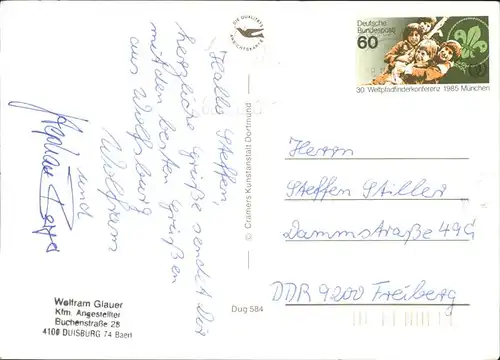 DIE QUALITÄTS
ANSICHTSKARTE
Deutsche
Bundespost
60
30. Weltpfadfinderkonferenz 1985 München
Hallo Steffen
herzliche Grüße sendet Dir
mit den besten Grüßen
aus Wolfsburg
Wolfram
und
Herrn
Steffen Stiller
Dammstraße 49G
DDR 9200 Freiberg
© Cramers Kunstanstalt Dortmund
Dug 584
Wolfram Glauer
Kfm. Angestellter
Buchenstraße 28
4100 DUISBURG 74 Baerl